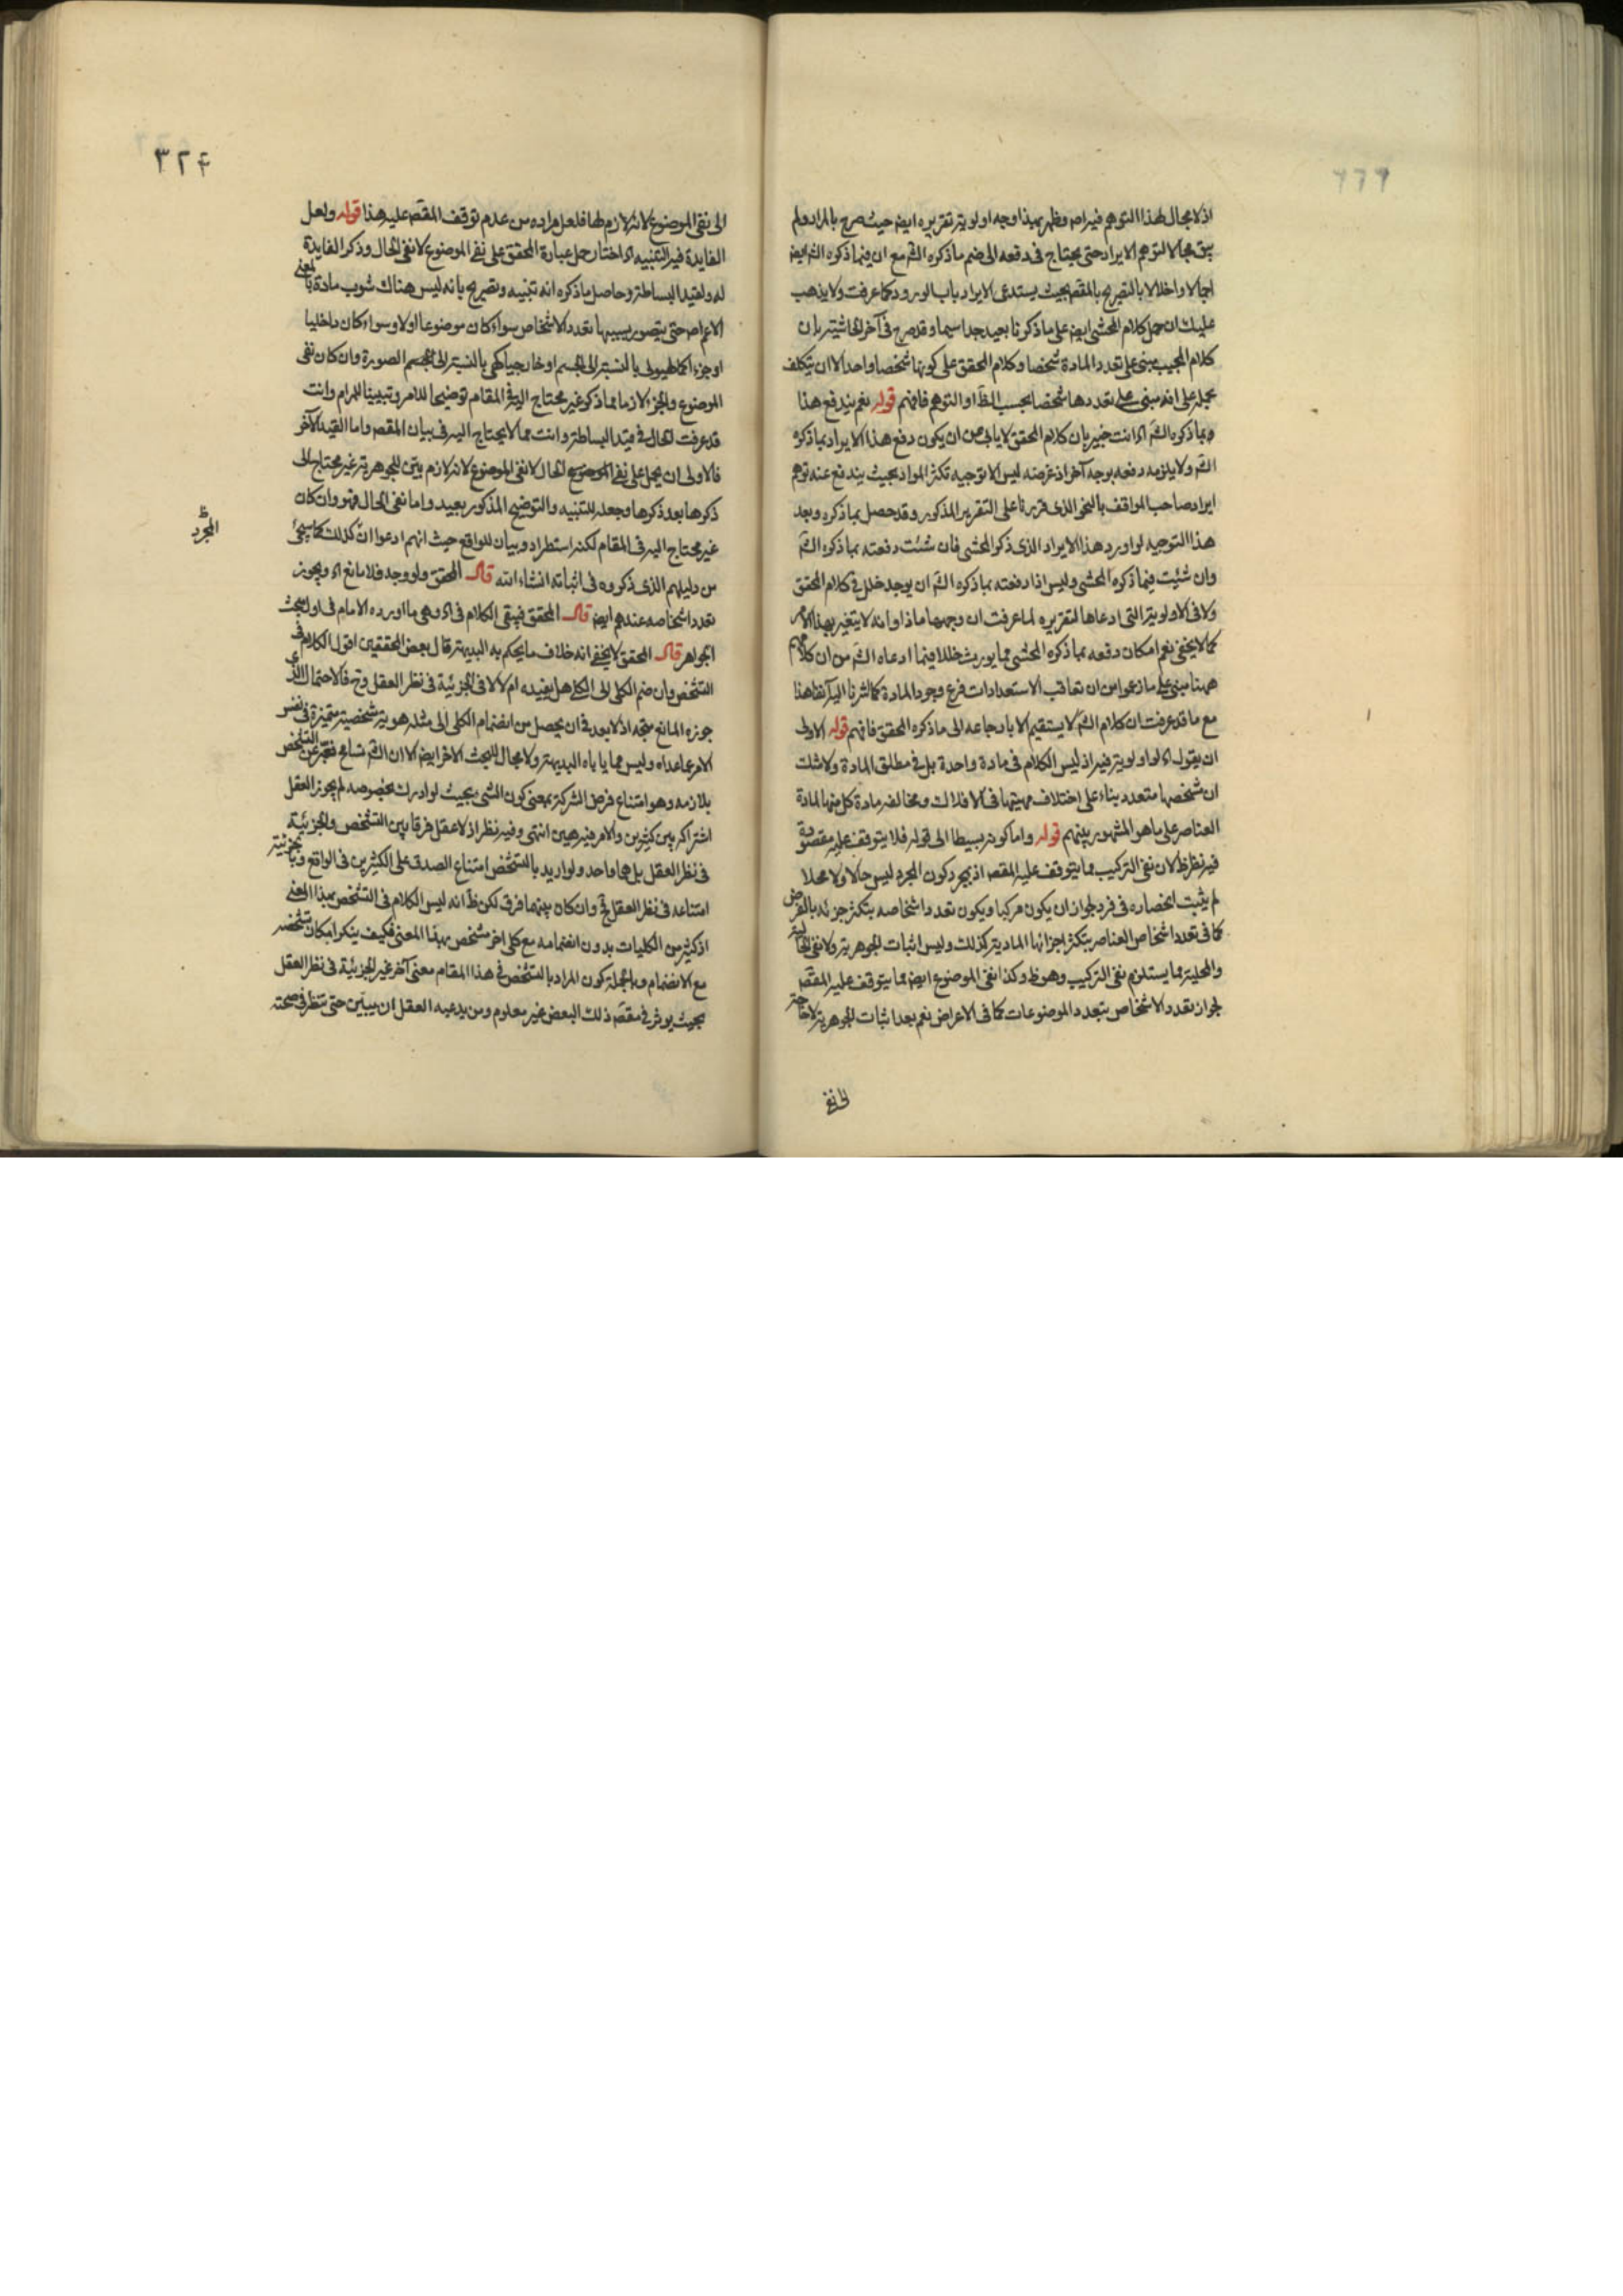 اذ لا مجال لهذا التوهم فيه اصلا وظهر بهذا وجه اولوية تقريره ايضا حيث صرح بالمراد ولم
يبق مجالا لتوهم الايراد حتى يحتاج فى دفعه الى ضم ما ذكره الشّ مع ان فيما ذكره الشّ ايضا
اجمالا واخلالا بالتصريح بالمقصد بحيث يستدعى الايراد باب الورود كما عرفت ولا يذهب
عليك ان حمل كلام المحشى ايضا على ما ذكرنا بعيد جدا سيما وقد صرح فى آخر الحاشية بان
كلام المجيب مبنى على تعدد المادة شخصا وكلام المحقق على كونها شخصا واحدا الا ان يتكلف
بحمله على انه مبنى على تعددها شخصا بحسب الظ او التوهم فافهم قوله نعم يندفع هذا
وبما ذكره الشّ اه انت خبير بان كلام المحقق لا يابى من ان يكون دفع هذا الايراد بما ذكره
الشّ ولا يلزمه دفعه بوجه آخر اذ غرضه ليس الا توجيه تكثر المواد بحيث يندفع عنه توهم
ايراد صاحب المواقف بالنحو الذى قررنا على التقرير المذكور وقد حصل بما ذكره وبعد
هذا التوجيه لو اورد هذا الايراد الذى ذكر المحشى فان شئت دفعته بما ذكره الشّ
وان شئت فبما ذكره المحشى وليس اذا دفعته بما ذكره الشّ ان يوجد خلل فى كلام المحقق
ولا فى الاولوية التى ادعاها لتقريره لما عرفت ان وجهها ماذا وانه لا يتغير بهذا الامر
كما لا يخفى نعم امكان دفعه بما ذكره المحشى مما يورث خللا فيما ادعاه الشّ من ان كلامهم
ههنا مبنى على ما زعموا من ان تعاقب الاستعدادات فرع وجود المادة كما اشرنا اليه آنفا هذا
مع ما قد عرفت ان كلام الشّ لا يستقيم الا بارجاعه الى ما ذكره المحقق فافهم قوله الاولى
ان يقول اه لا اولوية فيه اذ ليس الكلام فى مادة واحدة بل فى مطلق المادة ولا شك
ان شخصها متعدد بناء على اختلاف مهيتها فى الافلاك ومخالفة مادة كل منها لمادة
العناصر على ما هو المشهور بينهم قوله واما كونه بسيطا الى قوله فلا يتوقف عليه مقصوده
فيه نظر ظ لان نفى التركيب مما يتوقف عليه المقصد اذ بمجرد كون المجرد ليس حالا ولا محلا
لم يثبت انحصاره فى فرد لجواز ان يكون مركبا ويكون تعدد اشخاصه بتكثر جزئه بالعرض
كما فى تعدد اشخاص العناصر بتكثر اجزائها المادية كذلك وليس اثبات الجوهرية ولا نفى الحالية
والمحلية مما يستلزم نفى التركيب وهو ظ وكذا نفى الموضوع ايضا مما يتوقف عليه المقصد
لجواز تعدد الاشخاص بتعدد الموضوعات كما فى الاعراض نعم بعد اثبات الجوهرية لا حاجة
الى نفى
٣٢۴
الى نفى الموضوع لانه لازم لها فلعل مراده من عدم توقف المقصد عليه هذا قوله ولعل
الفايدة فيه التنبيه اه اختار حمل عبارة المحقق على نفى الموضوع لا نفى الحال وذكر الفايدة
له ولقيد البساطة وحاصل ما ذكره انه تنبيه وتصريح بانه ليس هناك شوب مادة بالمعنى
الاعم اصلا حتى يتصور بسببها تعدد الاشخاص سواء كان موضوعا اولا وسواء كان داخليا
او جزءا كالهيولى بالنسبة الى الجسم او خارجيا كهى بالنسبة الى الصورة وان كان نفى
الموضوع والجزء لازما مما ذكر غير محتاج اليه فى المقام توضيحا للامر وتبيينا للمرام وانت
قد عرفت الحال فى قيد البساطة وانت مما لا يحتاج اليه فى بيان المقصد واما القيد الآخر
فالاولى ان يحمل على نفى الحال لا نفى الموضوع لانه لازم بيّن للجوهرية غير محتاج الى
ذكرها بعد ذكرها وجعله للتنبيه والتوضيح المذكور بعيد واما نفى الحال فهو وان كان
غير محتاج اليه فى المقام لكنه استطراد وبيان للواقع حيث انهم ادعوا انّ المجرد كذلك كما سيجئ
من دليلهم الذى ذكروه فى اثباته انشاء الله قال المحقق ولو وجد فلا مانع اه ويجوز
تعدد اشخاصه عندهم ايضا قال المحقق فيبقى الكلام فى اه وهى ما اورده الامام فى اول بحث
الجواهر قال المحقق لا يخفى انه خلاف ما يحكم به البديهة قال بعض المحققين اقول الكلام فى
التشخص وان ضم الكلى الى الكلى هل يفيده ام لا لا فى الجزئية فى نظر العقل وح فالاحتمال الذى
جوزه المانع متجه اذ لا بعد فى ان يحصل من انضمام الكلى الى مثله هوية شخصية متميزة فى نفس
الامر عما عداه وليس مما ياباه البديهة ولا مجال للبحث الاخر ايضا الا ان الشّ تسامح فعبر عن التشخص
بلازمه وهو امتناع فرض الشركة بمعنى كون الشئ بحيث لو ادرك بخصوصه لم يجوز العقل
اشتراكه بين كثيرين والامر فيه هين انتهى وفيه نظر اذ لا عقل فرقا بين التشخص والجزئية
فى نظر العقل بل هما واحد ولو اريد بالتشخص امتناع الصدق على الكثيرين فى الواقع وبالجزئية
امتناعه فى نظر العقل فح وان كان بينهما فرق لكن ظ انه ليس الكلام فى التشخص بهذا المعنى
اذ كثير من الكليات بدون انضمامه مع كلى اخر متشخص بهذا المعنى فكيف ينكر امكان تشخصه
مع الانضمام وبالجملة كون المراد بالتشخص فى هذا المقام معنى آخر غير الجزئية فى نظر العقل
بحيث يوثر فى مقصد ذلك البعض غير معلوم ومن يدعيه العقل ان يبيّن حتى تنظر فى صحته
المجرد